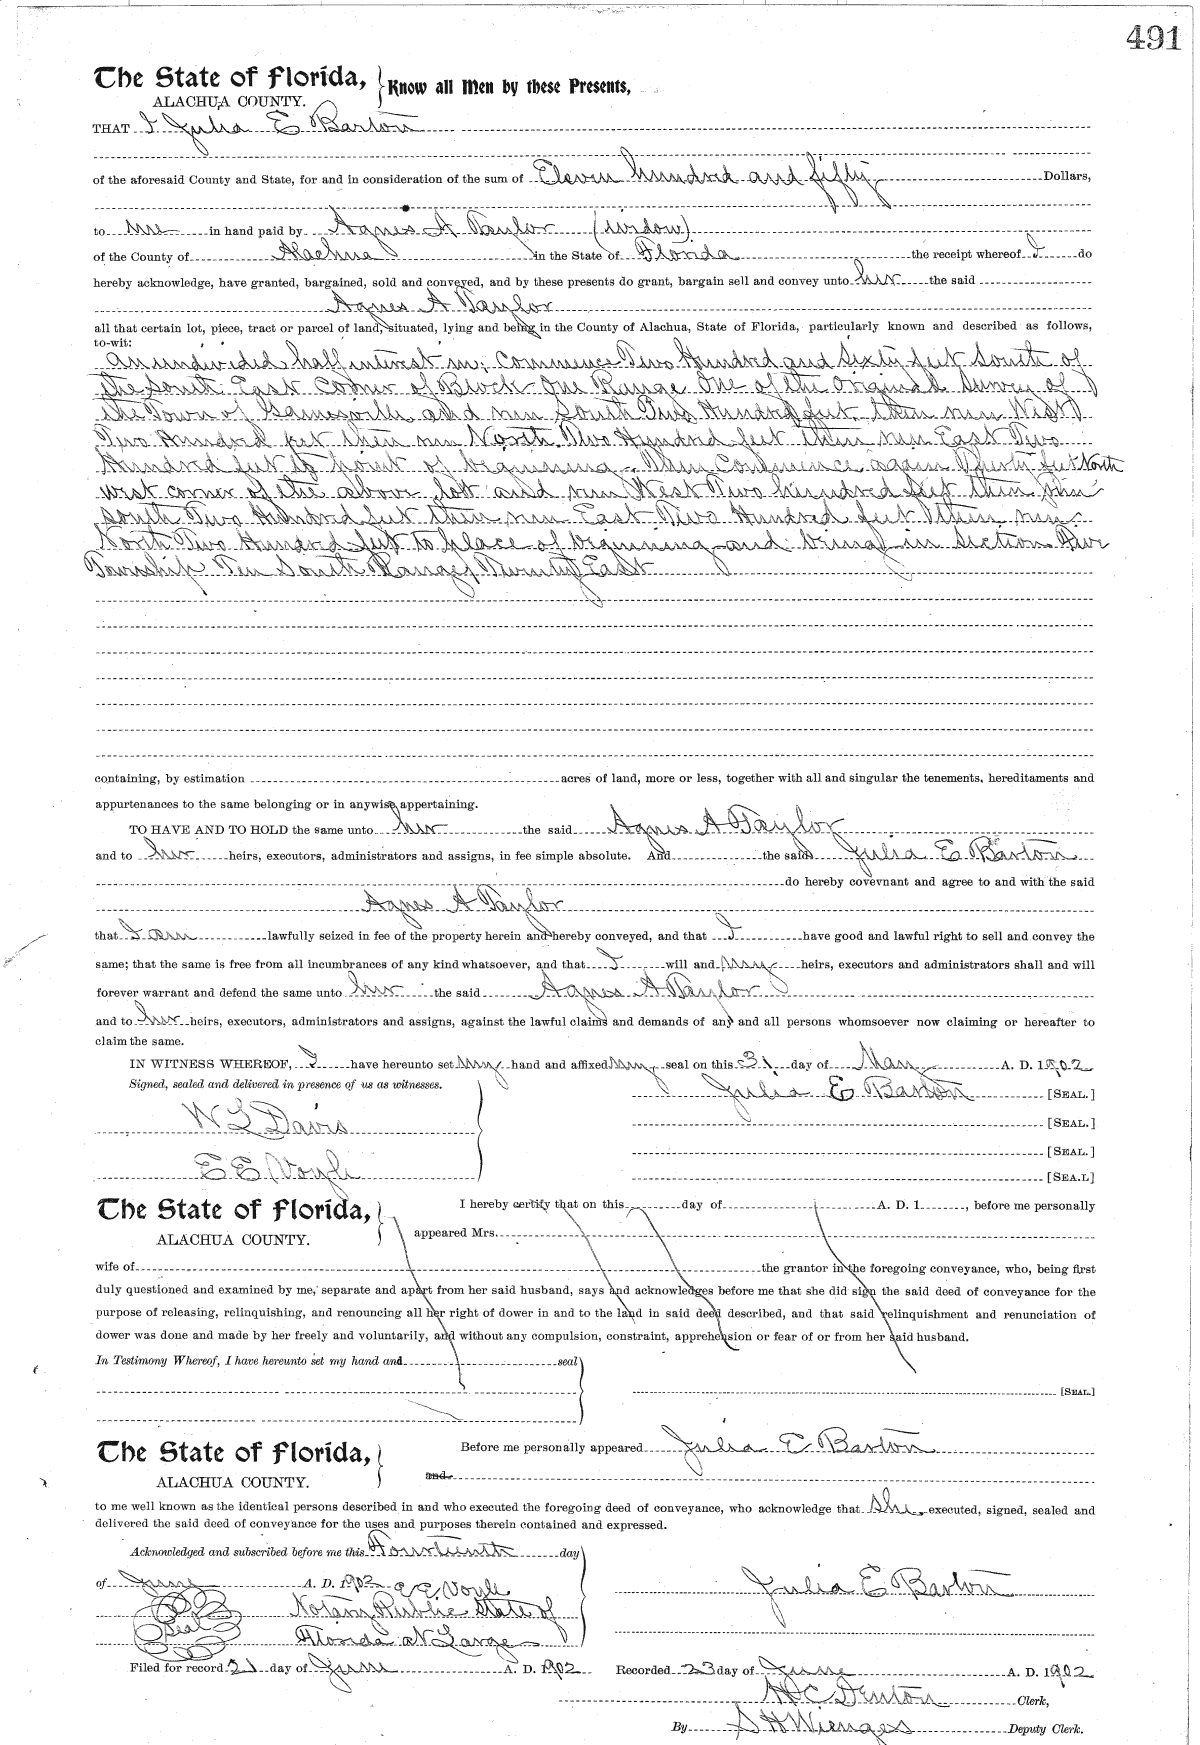 491
The State of Florida, Know all Men by these Presents,
ALACHUA COUNTY.
THAT I Julia E Barton
of the aforesaid County and State, for and in consideration of the sum of Eleven hundred and fifty Dollars,
to me in hand paid by Agnes A Taylor (widow)
of the County of Alachua in the State of Florida the receipt whereof I do
hereby acknowledge, have granted, bargained, sold and conveyed, and by these presents do grant, bargain sell and convey unto her the said
Agnes A Taylor
all that certain lot, piece, tract or parcel of land, situated, lying and being in the County of Alachua, State of Florida, particularly known and described as follows,
to-wit:
An undivided half interest in; Commence Two Hundred and Sixty feet South of
the South East Corner of Block One Range One of the Original Survey of
the Town of Gainesville and run South Two Hundred feet then run West
Two Hundred feet then run North Two Hundred feet then run East Two
Hundred feet to point of beginning. Then Commence again feet North
west corner of the above lot and run West Two hundred feet then run
South Two Hundred feet then run East Two Hundred feet then run
North Two Hundred feet to place of beginning and being in Section Five
Township Ten South Range Twenty East
containing, by estimation acres of land, more or less, together with all and singular the tenements, hereditaments and
appurtenances to the same belonging or in anywise appertaining.
TO HAVE AND TO HOLD the same unto her the said Agnes A Taylor
and to her heirs, executors, administrators and assigns, in fee simple absolute. And the said Julia E Barton
do hereby covevnant and agree to and with the said
Agnes A Taylor
that I am lawfully seized in fee of the property herein and hereby conveyed, and that I have good and lawful right to sell and convey the
same; that the same is free from all incumbrances of any kind whatsoever, and that I will and my heirs, executors and administrators shall and will
forever warrant and defend the same unto her the said Agnes A Taylor
and to her heirs, executors, administrators and assigns, against the lawful claims and demands of any and all persons whomsoever now claiming or hereafter to
claim the same.
IN WITNESS WHEREOF, I have hereunto set my hand and affixed my seal on this 31 day of May A. D. 1902
Signed, sealed and delivered in presence of us as witnesses.
Julia E Barton [SEAL.]
W L Davis [SEAL.]
[SEAL.]
E E Voyle [SEAL.]
The State of Florida, I hereby certify that on this day of A. D. 1 , before me personally
ALACHUA COUNTY. appeared Mrs.
wife of the grantor in the foregoing conveyance, who, being first
duly questioned and examined by me, separate and apart from her said husband, says and acknowledges before me that she did sign the said deed of conveyance for the
purpose of releasing, relinquishing, and renouncing all her right of dower in and to the land in said deed described, and that said relinquishment and renunciation of
dower was done and made by her freely and voluntarily, and without any compulsion, constraint, apprehension or fear of or from her said husband.
In Testimony Whereof, I have hereunto set my hand and seal
[SEAL.]
The State of Florida, Before me personally appeared Julia E Barton
ALACHUA COUNTY. and
to me well known as the identical persons described in and who executed the foregoing deed of conveyance, who acknowledge that she executed, signed, sealed and
delivered the said deed of conveyance for the uses and purposes therein contained and expressed.
Acknowledged and subscribed before me this Fourteenth day
of June A. D. 1902 E E Voyle Julia E Barton
Notary Public State of
Seal
Florida at Large
Filed for record 21 day of June A. D. 1902 Recorded 23 day of June A. D. 1902
H C Denton Clerk,
By S H Wienges Deputy Clerk.